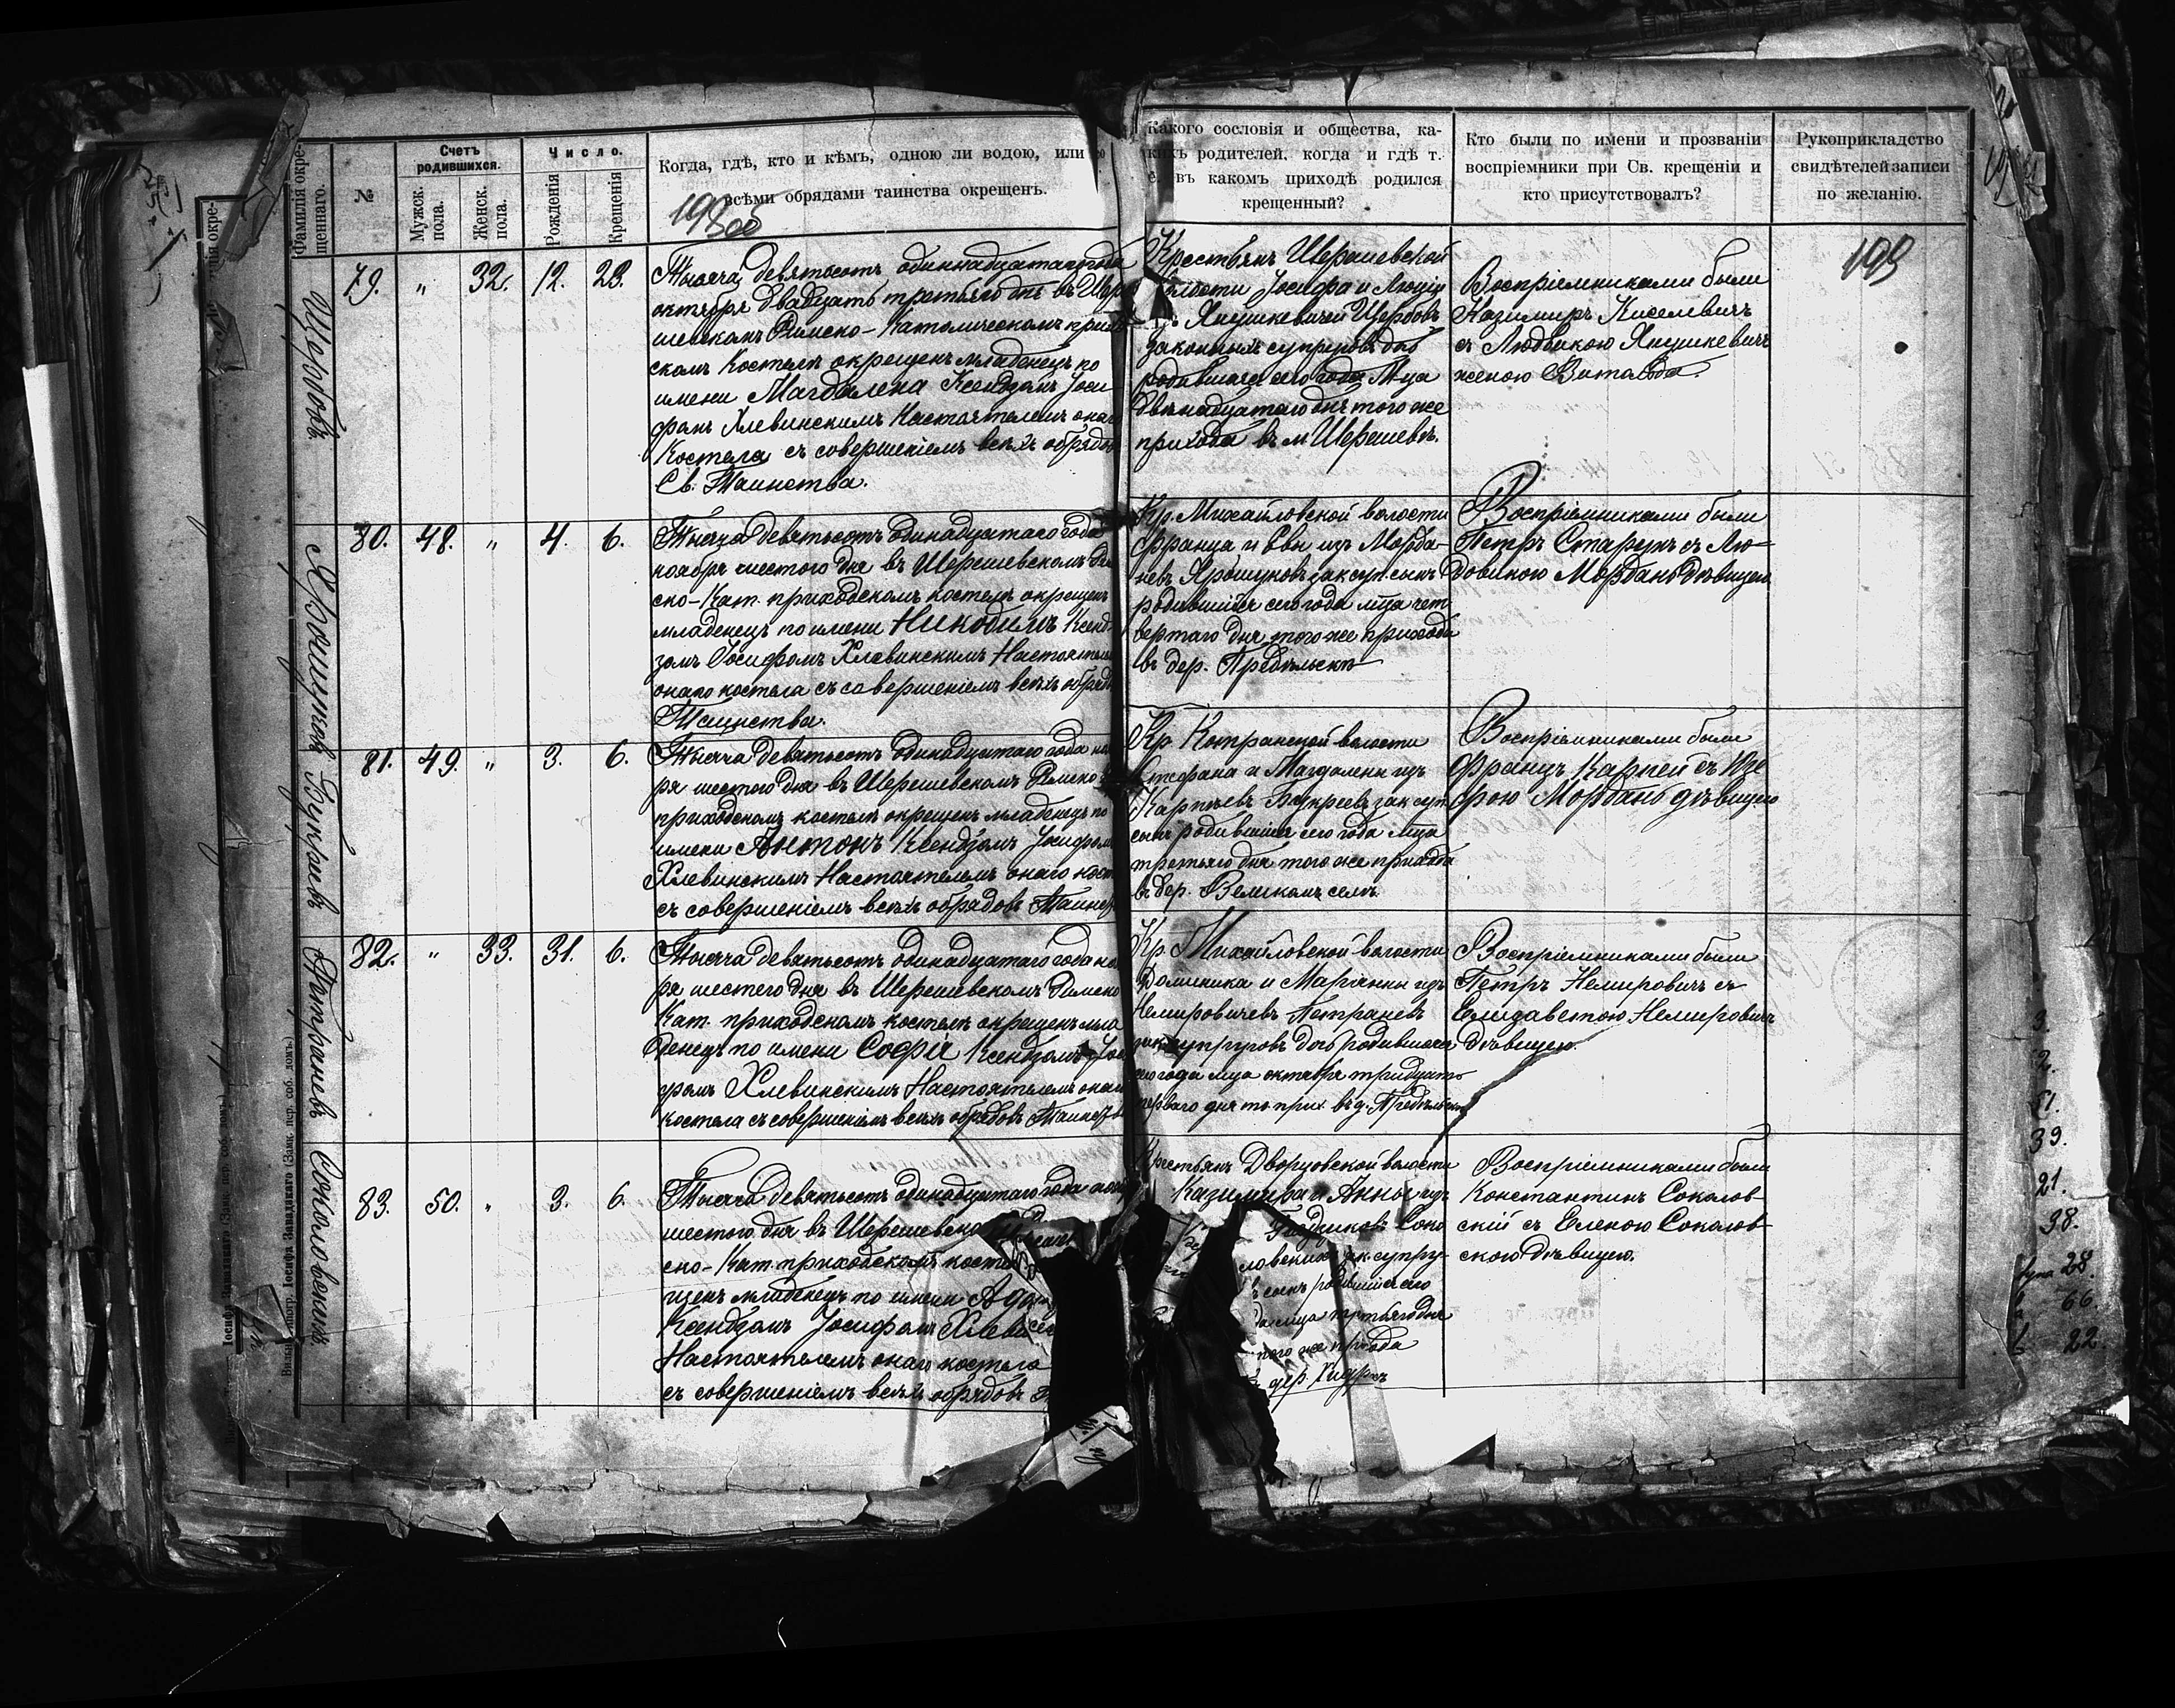 Фамилія окре-
щеннаго.
№
Счетъ
родившихся.
Мужск.
пола.
Женск.
пола.
Число.
Рожденія
Крещенія
Когда, гдѣ, кто и кѣмъ, одною ли водою, или
всѣми обрядами таинства окрещенъ.
Какого сословія и общества, ка-
кихъ родителей, когда и гдѣ т.
е. въ какомъ приходѣ родился
крещенный?
Кто были по имени и прозваніи
воспріемники при Св. крещеніи и
кто присутствовалъ?
Рукоприкладство
свидѣтелей записи
по желанію.
193
Щербовъ
79. " 32. 12. 23.
Тысяча девятьсотъ одиннадцатаго года
октября двадцать третьяго дня въ Шере
шевскомъ Римско-Католическомъ приход
скомъ Костелѣ окрещенъ младенецъ по
имени Магдалена Ксендзомъ Іоси
фомъ Хлевинскимъ Настоятелемъ онаго
Костела съ совершеніемъ всѣхъ обрядовъ
Св. Таинства.
Крестьянъ Шерешевской
волости Іосифа и Люціи
изъ Янушкевичей Щербовъ
законныхъ супруговъ дочь
родившаяся сего года М-ца
двѣнадцатаго дня того же
прихода въ м Шерешевѣ.
Воспріемниками были
Казимиръ Киселевичъ
съ Людвикою Янушкевичъ
женою Витольда.
80. 48. " 4. 6.
Тысяча девятьсотъ одинадцатаго года
ноября шестого дня въ Шерешевскомъ Рим
ско-Кат. приходскомъ костелѣ окрещенъ
младенецъ по имени Никодимъ Ксенд
зомъ Іосифомъ Хлевинскимъ Настоятелемъ
онаго костела съ совершеніемъ всѣхъ обрядовъ
Таинства.
Кр. Михайловской волости
Франца и Евы изъ Морда-
невъ Ярошуковъ зак суп сынъ
родившійся сего года м-ца чет
вертаго дня того же прихода
въ дер.
Воспріемниками были
Петръ Старунъ съ Лю-
довикою Морданъ дѣвицею
Букраевъ
81. 49. " 3. 6.
Тысяча девятьсотъ одинадцатаго года нояб
ря шестого дня въ Шерешевскомъ Римско
приходскомъ костелѣ окрещенъ младенецъ по
имени Антонъ Ксендзомъ Іосифомъ
Хлевинскимъ Настоятелемъ онаго кост
съ совершеніемъ всѣхъ обрядовъ Таинст
Кр Котранской волости
Стефана и Магдалены изъ
Карпѣевъ Букреевъ зак суп
сынъ родившійся сего года м-ца
третьяго дня того же прихода
въ дер. Великомъ селѣ.
Воспріемниками были
Францъ Карпей съ Изе
фою Морданъ дѣвицею
Петраневъ
82. " 33. 31. 6.
Тысяча девятьсотъ одинадцатаго года нояб
ря шестого дня въ Шерешевскомъ Римско
Кат. приходскомъ костелѣ окрещенъ мла
денецъ по имени Софія Ксендзомъ Іоси
фомъ Хлевинскимъ Настоятелемъ онаго
костела съ совершеніемъ всѣхъ обрядовъ Таинства
Кр. Михайловской волости
Доминика и Маріанны изъ
Немировичевъ Петраневъ
зак супруговъ дочь родившаяся
сего года м-ца октября тридцать
перваго дня то прих. въ д.
Воспріемниками были
Петръ Немировичъ съ
Елизаветою Немировичъ
дѣвицею.
83. 50. " 3. 6.
Тысяча девятьсотъ одинадцатаго года
шестого дня въ Шерешевско
ско-Кат. приходскомъ косте
щенъ младенецъ по имени
Ксендзомъ Іосифомъ Хлевинс
Настоятелемъ онаго костела
съ совершеніемъ всѣхъ обрядовъ
Крестьянъ Дворцовской волости
Казимира и Анны изъ
Соко
ловскихъ зак. супру-
сынъ родившійся сего
м-ца третьяго дня
того же прихода
дер.
Воспріемниками были
Константинъ Соколов-
скій съ Еленою Соколов-
скою дѣвицею.
3.
2.
51.
39.
21.
38.
28.
66.
22.